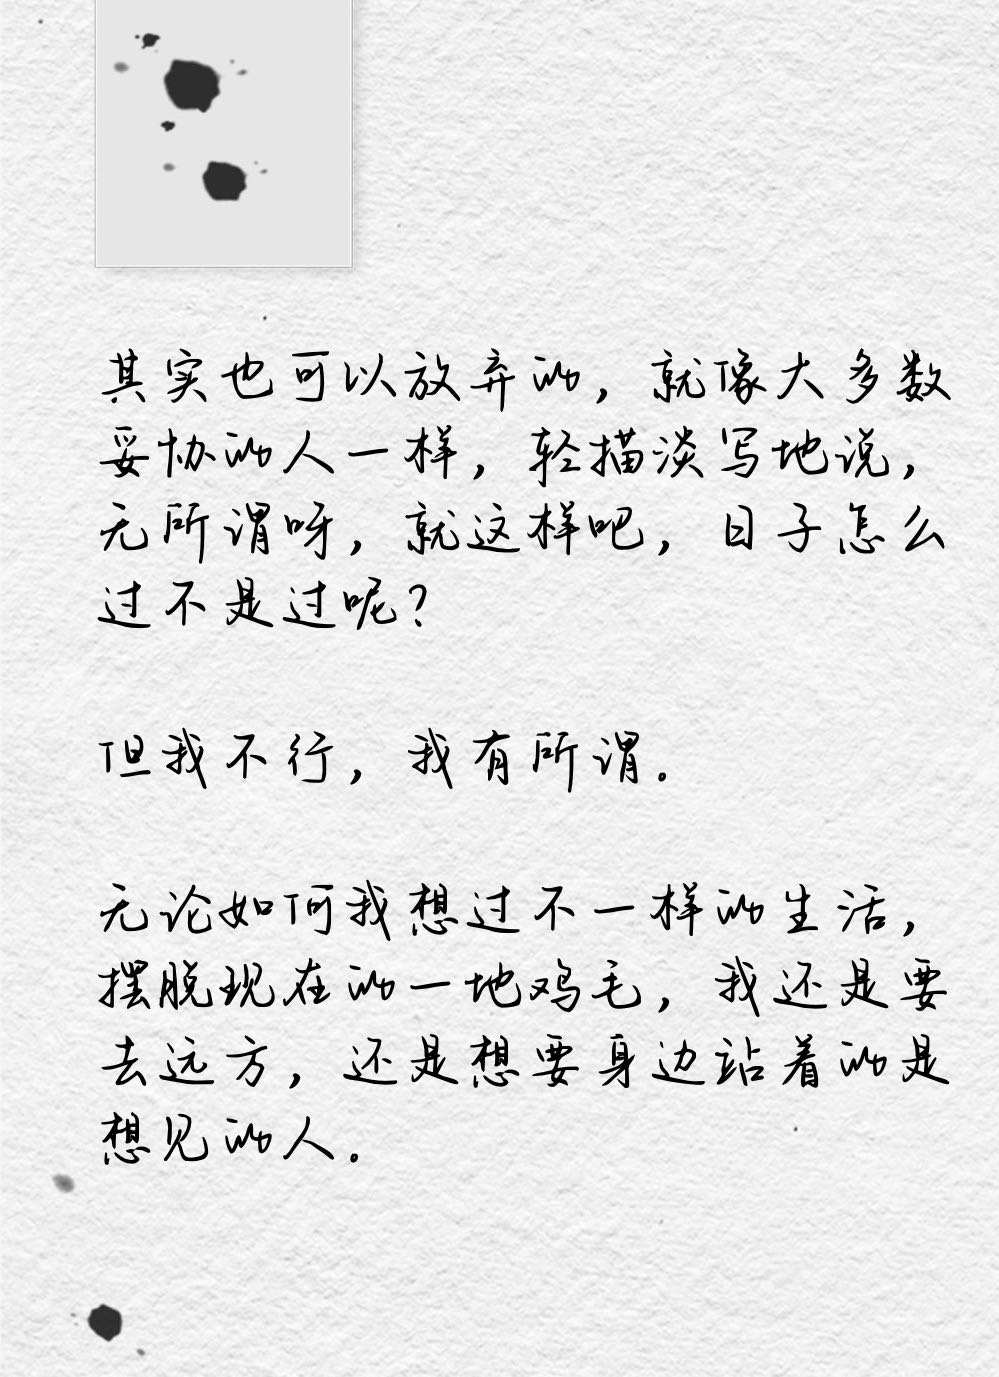 其实也可以放弃的，就像大多数
妥协的人一样，轻描淡写地说，
无所谓呀，就这样吧，日子怎么
过不是过呢？
但我不行，我有所谓。
无论如何我想过不一样的生活，
摆脱现在的一地鸡毛，我还是要
去远方，还是想要身边站着的是
想见的人。